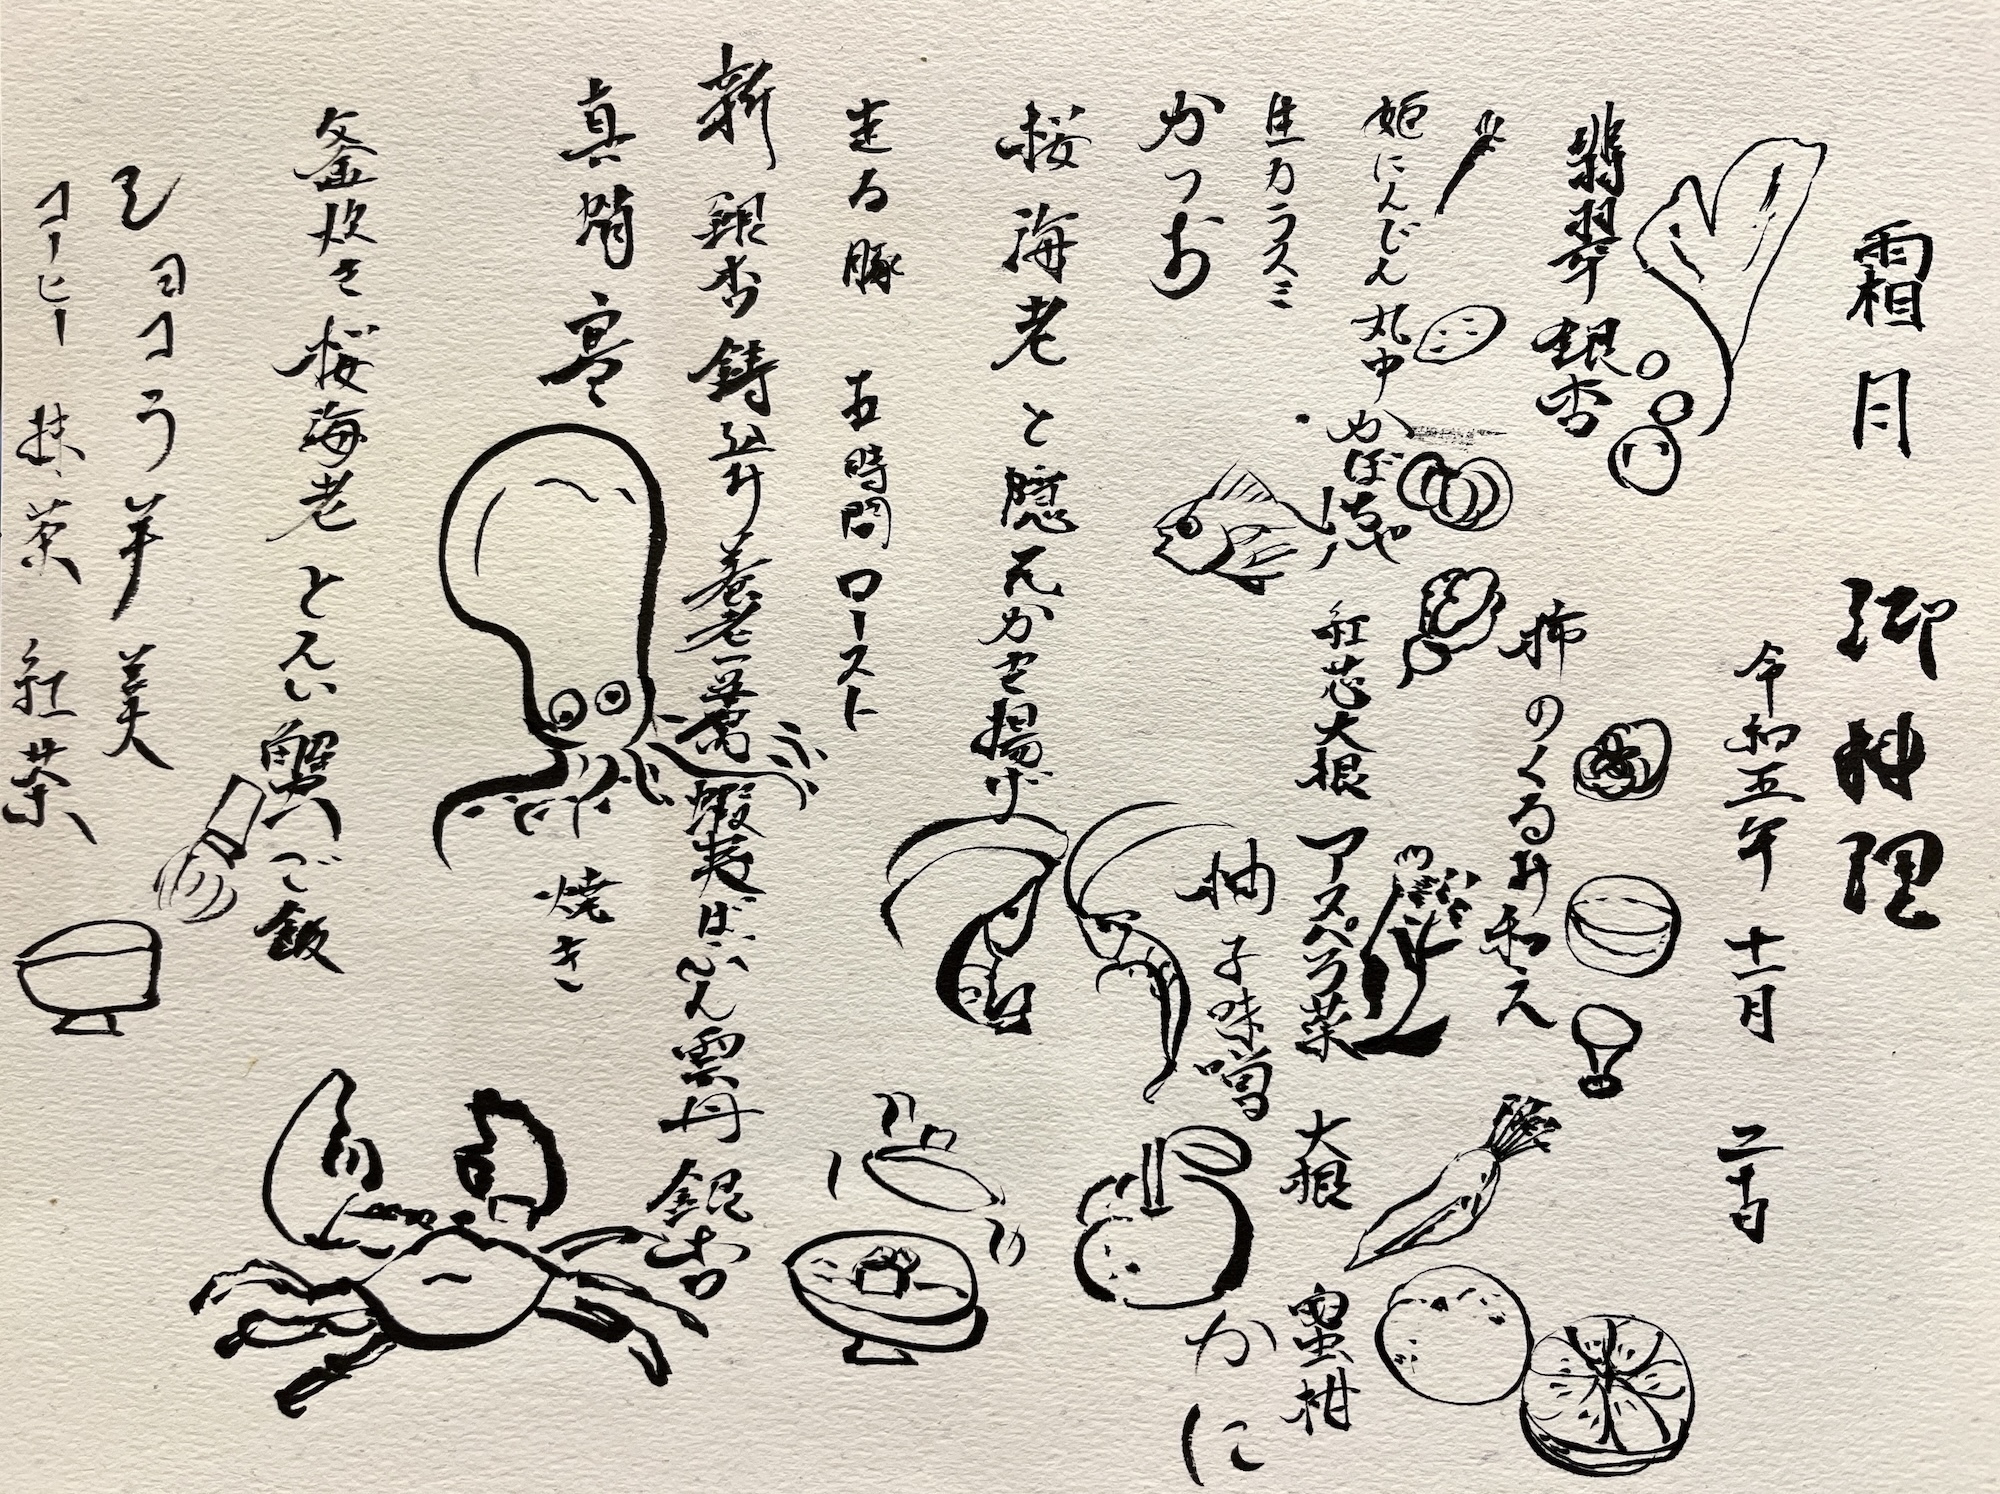 霜月 御料理
令和五年 十一月 二十日
翡翠 銀杏
柿のくるみ和え
姫にんじん 丸中 かぼちゃ
紅芯大根 アスペラ菜 大根 蜜柑
生カラスミ
柚子味噌
かつお
かに
桜海老と 隠元かき揚げ
走る豚 五時間ロースト
新銀杏
養老
蝦夷ばふん雲丹 餡
真蛸 焼き
釜炊き桜海老とずわい蟹ご飯
チョコようかん
コーヒー 抹茶 紅茶